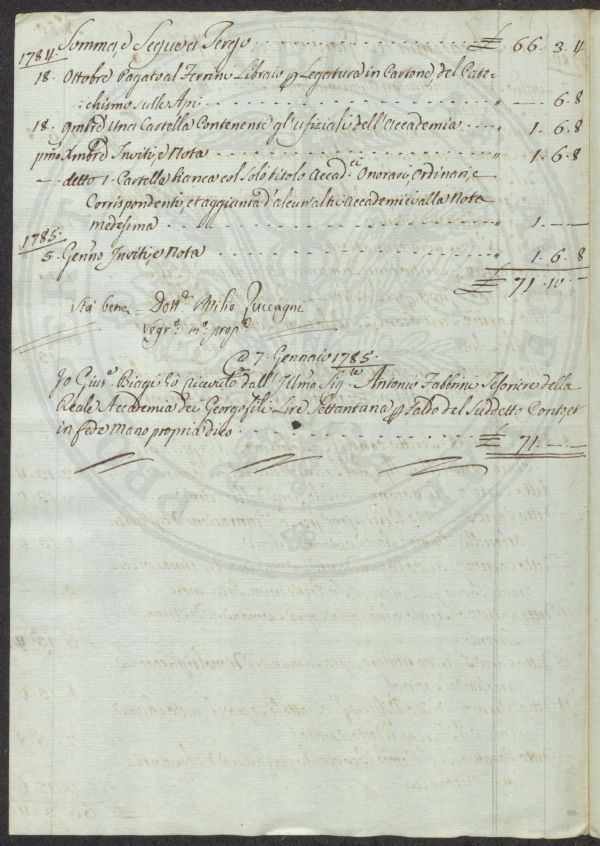 1784. Somma, e Segue a Tergo - - - £ 66. 3. 4
18. Ottobre Pagato al Ferrini Libraio p Legatura in Cartone, del Cate-
chismo sulle Api - - - " — 6. 8
18. 9mbre Una Cartella Contenente gl'ufiziali dell'Accademia - - - " 1. 6. 8
pmo Xmbre Inviti, e Nota - - - " 1. 6. 8
— detto 1. Cartella bianca col Solo titolo Accad.ci Onorari, Ordinari, e
Corrispondenti, et aggiunta d'alcun'altri Accademici alla Nota
medesima - - - " 1. — —
1785.
5. Genno Inviti, e Nota - - - " 1. 6. 8
£ 71. 10. —
Sta bene = Dott. Attilio Zuccagni
Segr.o m.o prop.a
a 7. Gennaio 1785.
Io Gius.e Biagi ho ricevuto dall'Illmo Sig.re Antonio Fabbrini Tesoriere della
Reale Accademia dei Georgofili Lire Settantuna p Saldo del Suddetto Conto, et
in fede mano propria dico - - - £ 71. — —